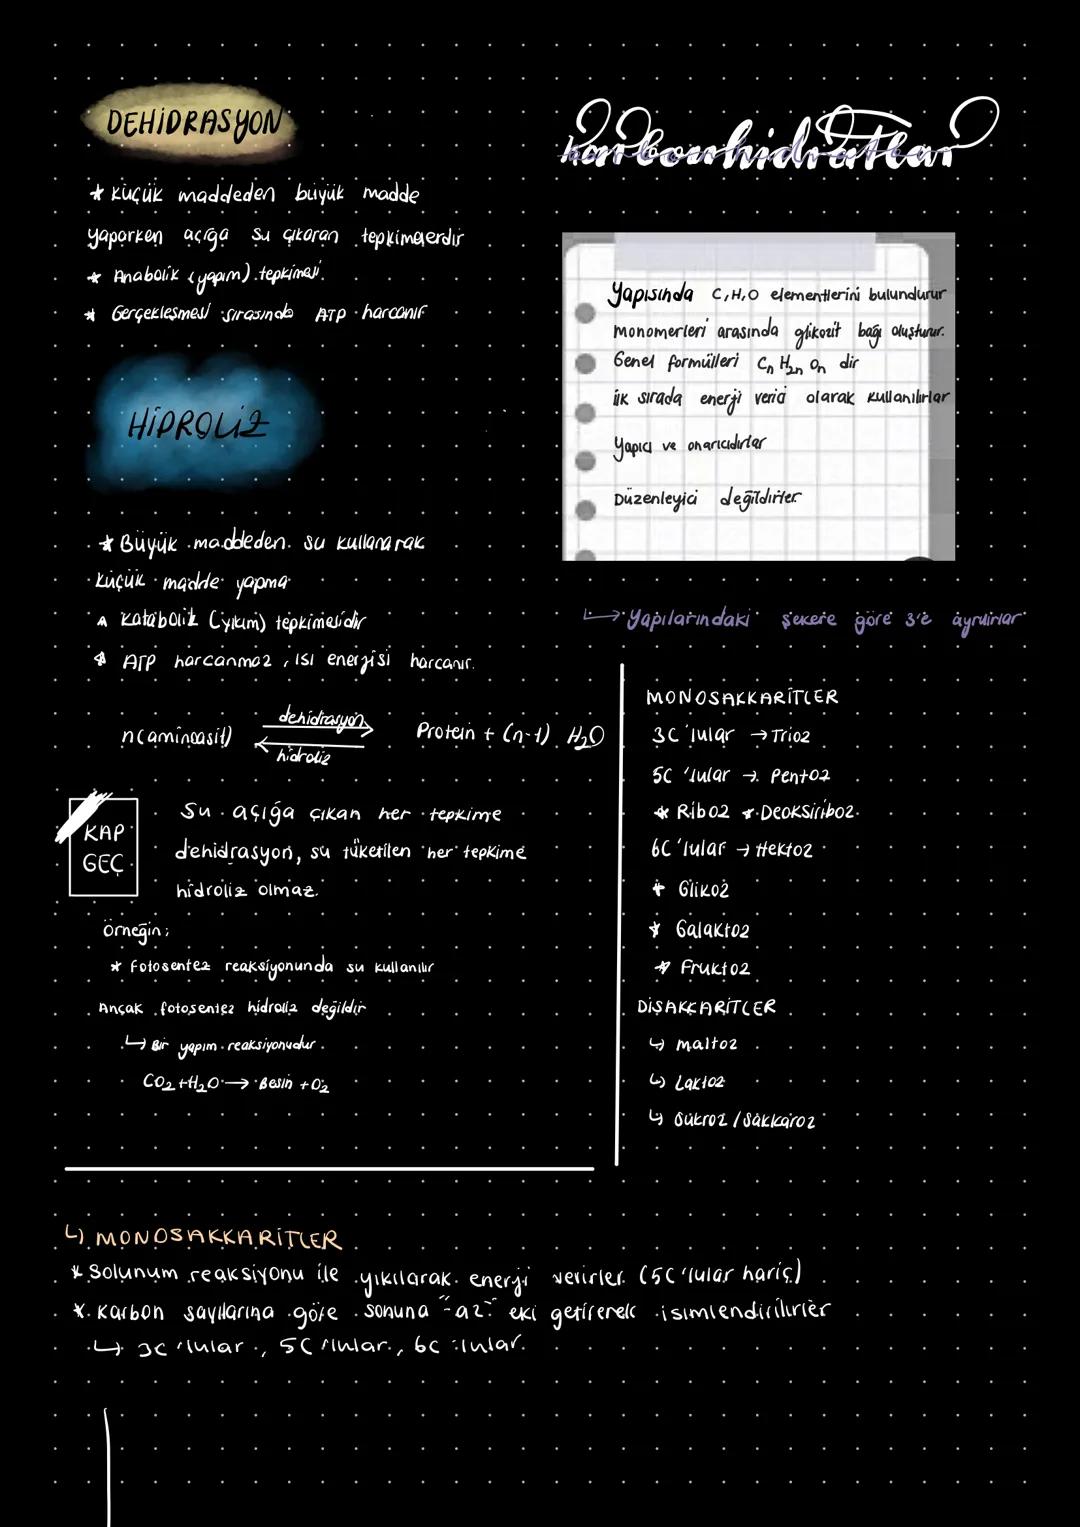 DEHİDRASYON
* Küçük maddeden büyük madde
yaparken açığa su çıkaran tepkimelerdir
* Anabolik (yapım) tepkimesi.
* Gerçekleşmesi sırasında ATP harcanır
HİDROLİZ
* Büyük maddeden su kullanarak
küçük madde yapma
* Katabolik (yıkım) tepkimesidir
* ATP harcanmaz, ısı enerjisi harcanır.
n(aminoasit) dehidrasyon Protein + (n-1) H₂O
hidroliz
KAP GEÇ
Su açığa çıkan her tepkime
dehidrasyon, su tüketilen her tepkime
hidroliz olmaz.
Örneğin;
* Fotosentez reaksiyonunda su kullanılır
Ançak fotosentez hidroliz değildir
↳ Bir yapım reaksiyonudur.
CO₂ + H₂O → Besin + O₂
Karbonhidratlar
Yapısında C,H,O elementlerini bulundurur
monomerleri arasında glikozit bağı oluşturur.
Genel formülleri Cn H2n On dir
ilk sırada enerji verici olarak kullanılırlar
Yapıcı ve onarıcıdırlar
Düzenleyici değildirler.
↳ Yapılarındaki şekere göre 3'e ayrılırlar
MONOSAKKARİTLER
3C'lular → Trioz
5C'lular → Pentoz
* Riboz * Deoksiriboz
6C'lular → Hektoz
* Glikoz
* Galaktoz
* Fruktoz
DİSAKKARİTLER
↳ maltoz
↳ Laktoz
↳ Sükroz / Sakkaroz
↳ MONOSAKKARİTLER
* Solunum reaksiyonu ile yıkılarak enerji verirler. (5C'lular hariç)
* Karbon sayılarına göre sonuna "-az" eki getirerek isimlendirilirler
↳ 3C'lular, 5C'lular, 6C'lular.